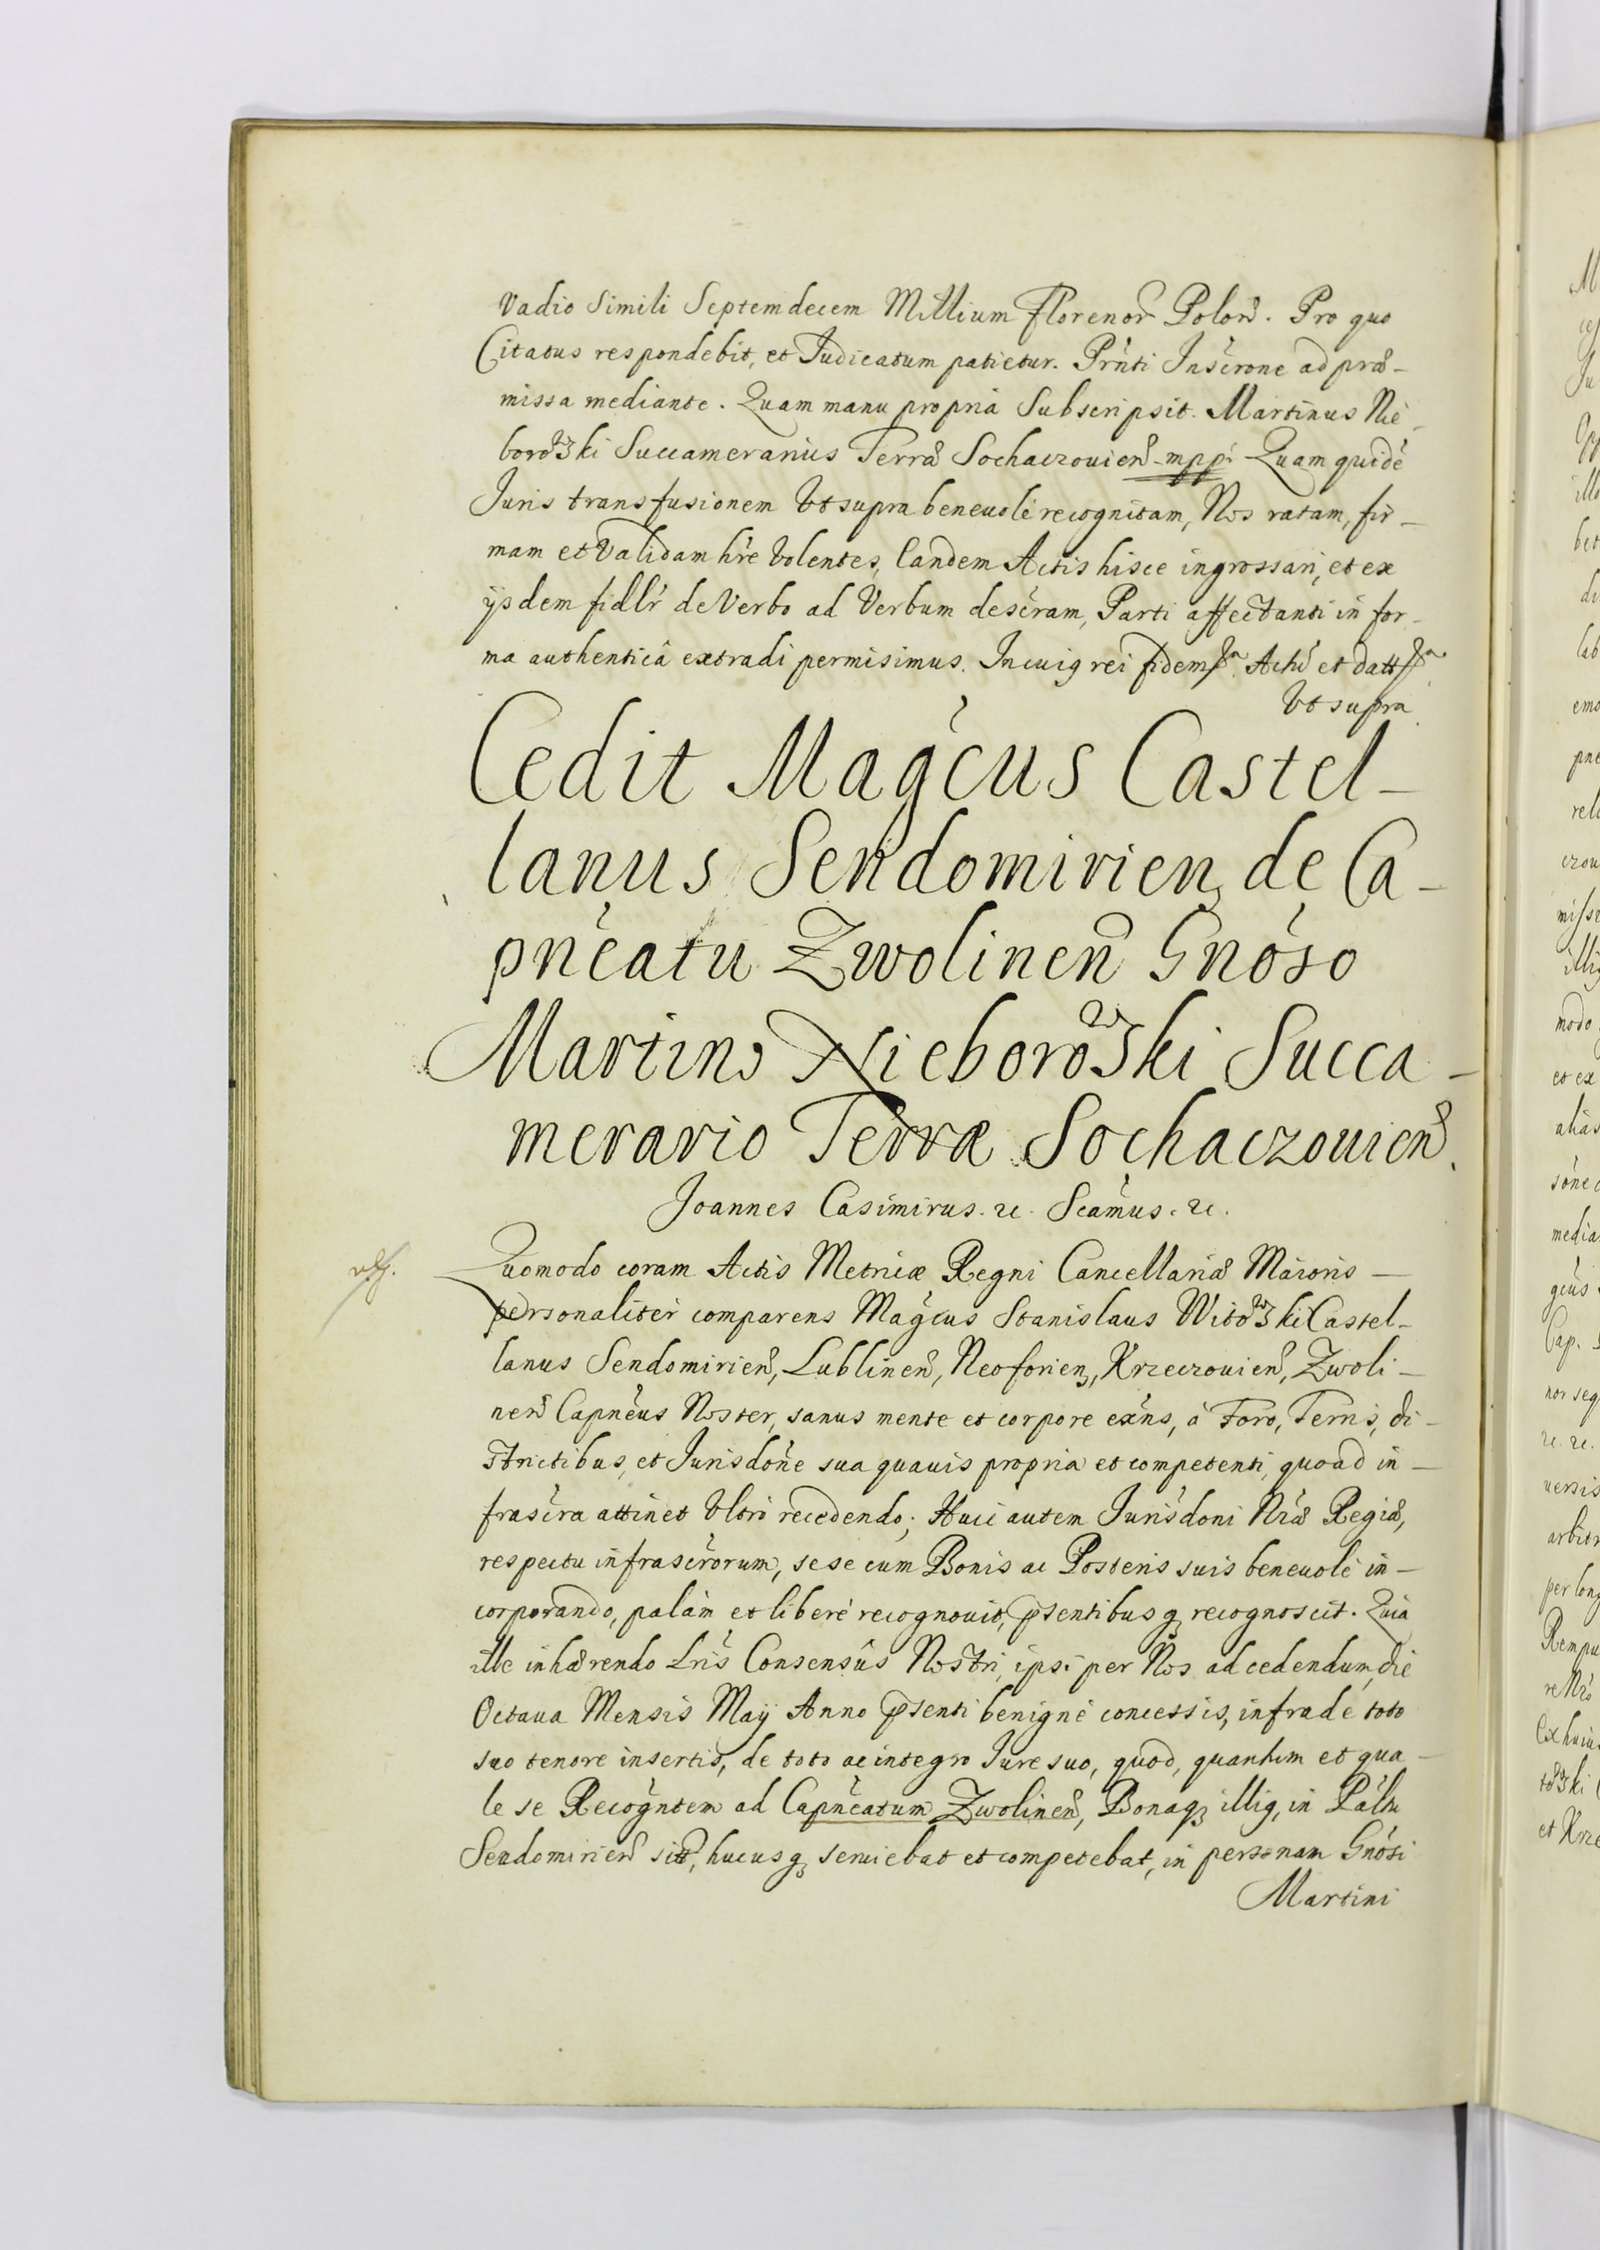 Vadio Simili Septemdecem Millium Florenor Polon. Pro quo
Citatus respondebit, et Judicatum patietur. Prnti Inscrone ad præ-
missa mediante. Quam manu propria Subscripsit. Martinus Nie-
borowski Succamerarius Terræ Sochaczouien mpp Quam quidé
Juris transfusionem Vt supra beneuolè recognitam, Nos ratam, fir-
mam et Validam hre Volentes, Eandem Actis hisce ingrossari, et ex
ijsdem fidlr de Verbo ad Verbum descram, Parti affectanti in for-
ma authenticâ extradi permisimus. In cuig rei fidem Actu et datt
Vt supra
Cedit Magcus Castel-
lanus Sendomirien de Ca-
pneatu Zwolinen Gnoso
Martino Nieborowski Succa-
merario Terræ Sochaczouien.
Joannes Casimirus. rc. Scamus. rc.
Quomodo coram Actis Metricæ Regni Cancellariæ Maioris
personaliter comparens Magcus Stanislaus Witowski Castel-
lanus Sendomirien, Lublinen, Neoforien, Krzeczouien, Zwoli-
nen Capneus Noster, sanus mente et corpore exns, à Foro, Terris, di-
strictibus, et Jurisdone sua quauis propria et competenti, quoad in-
frascra attinet Vltrò recedendo; Huic autem Jurisdoni Nræ Regiæ,
respectu infrascrorum, sese cum Bonis ac Posteris suis beneuolè in-
corporando, palàm et liberè recognouit, psentibusq recognoscit. Quia
ille inhærendo Lris Consensûs Nostri, ipsi per Nos ad cedendum, die
Octaua Mensis Maij Anno psenti benignè concessis, infra de toto
suo tenore insertis, de toto ac integro Jure suo, quod, quantum et qua-
le se Recogntem ad Capneatum Zwolinen, Bonaq illig, in Paltu
Sendomirien sitt, hucusq seruiebat et competebat, in personam Gnosi
Martini